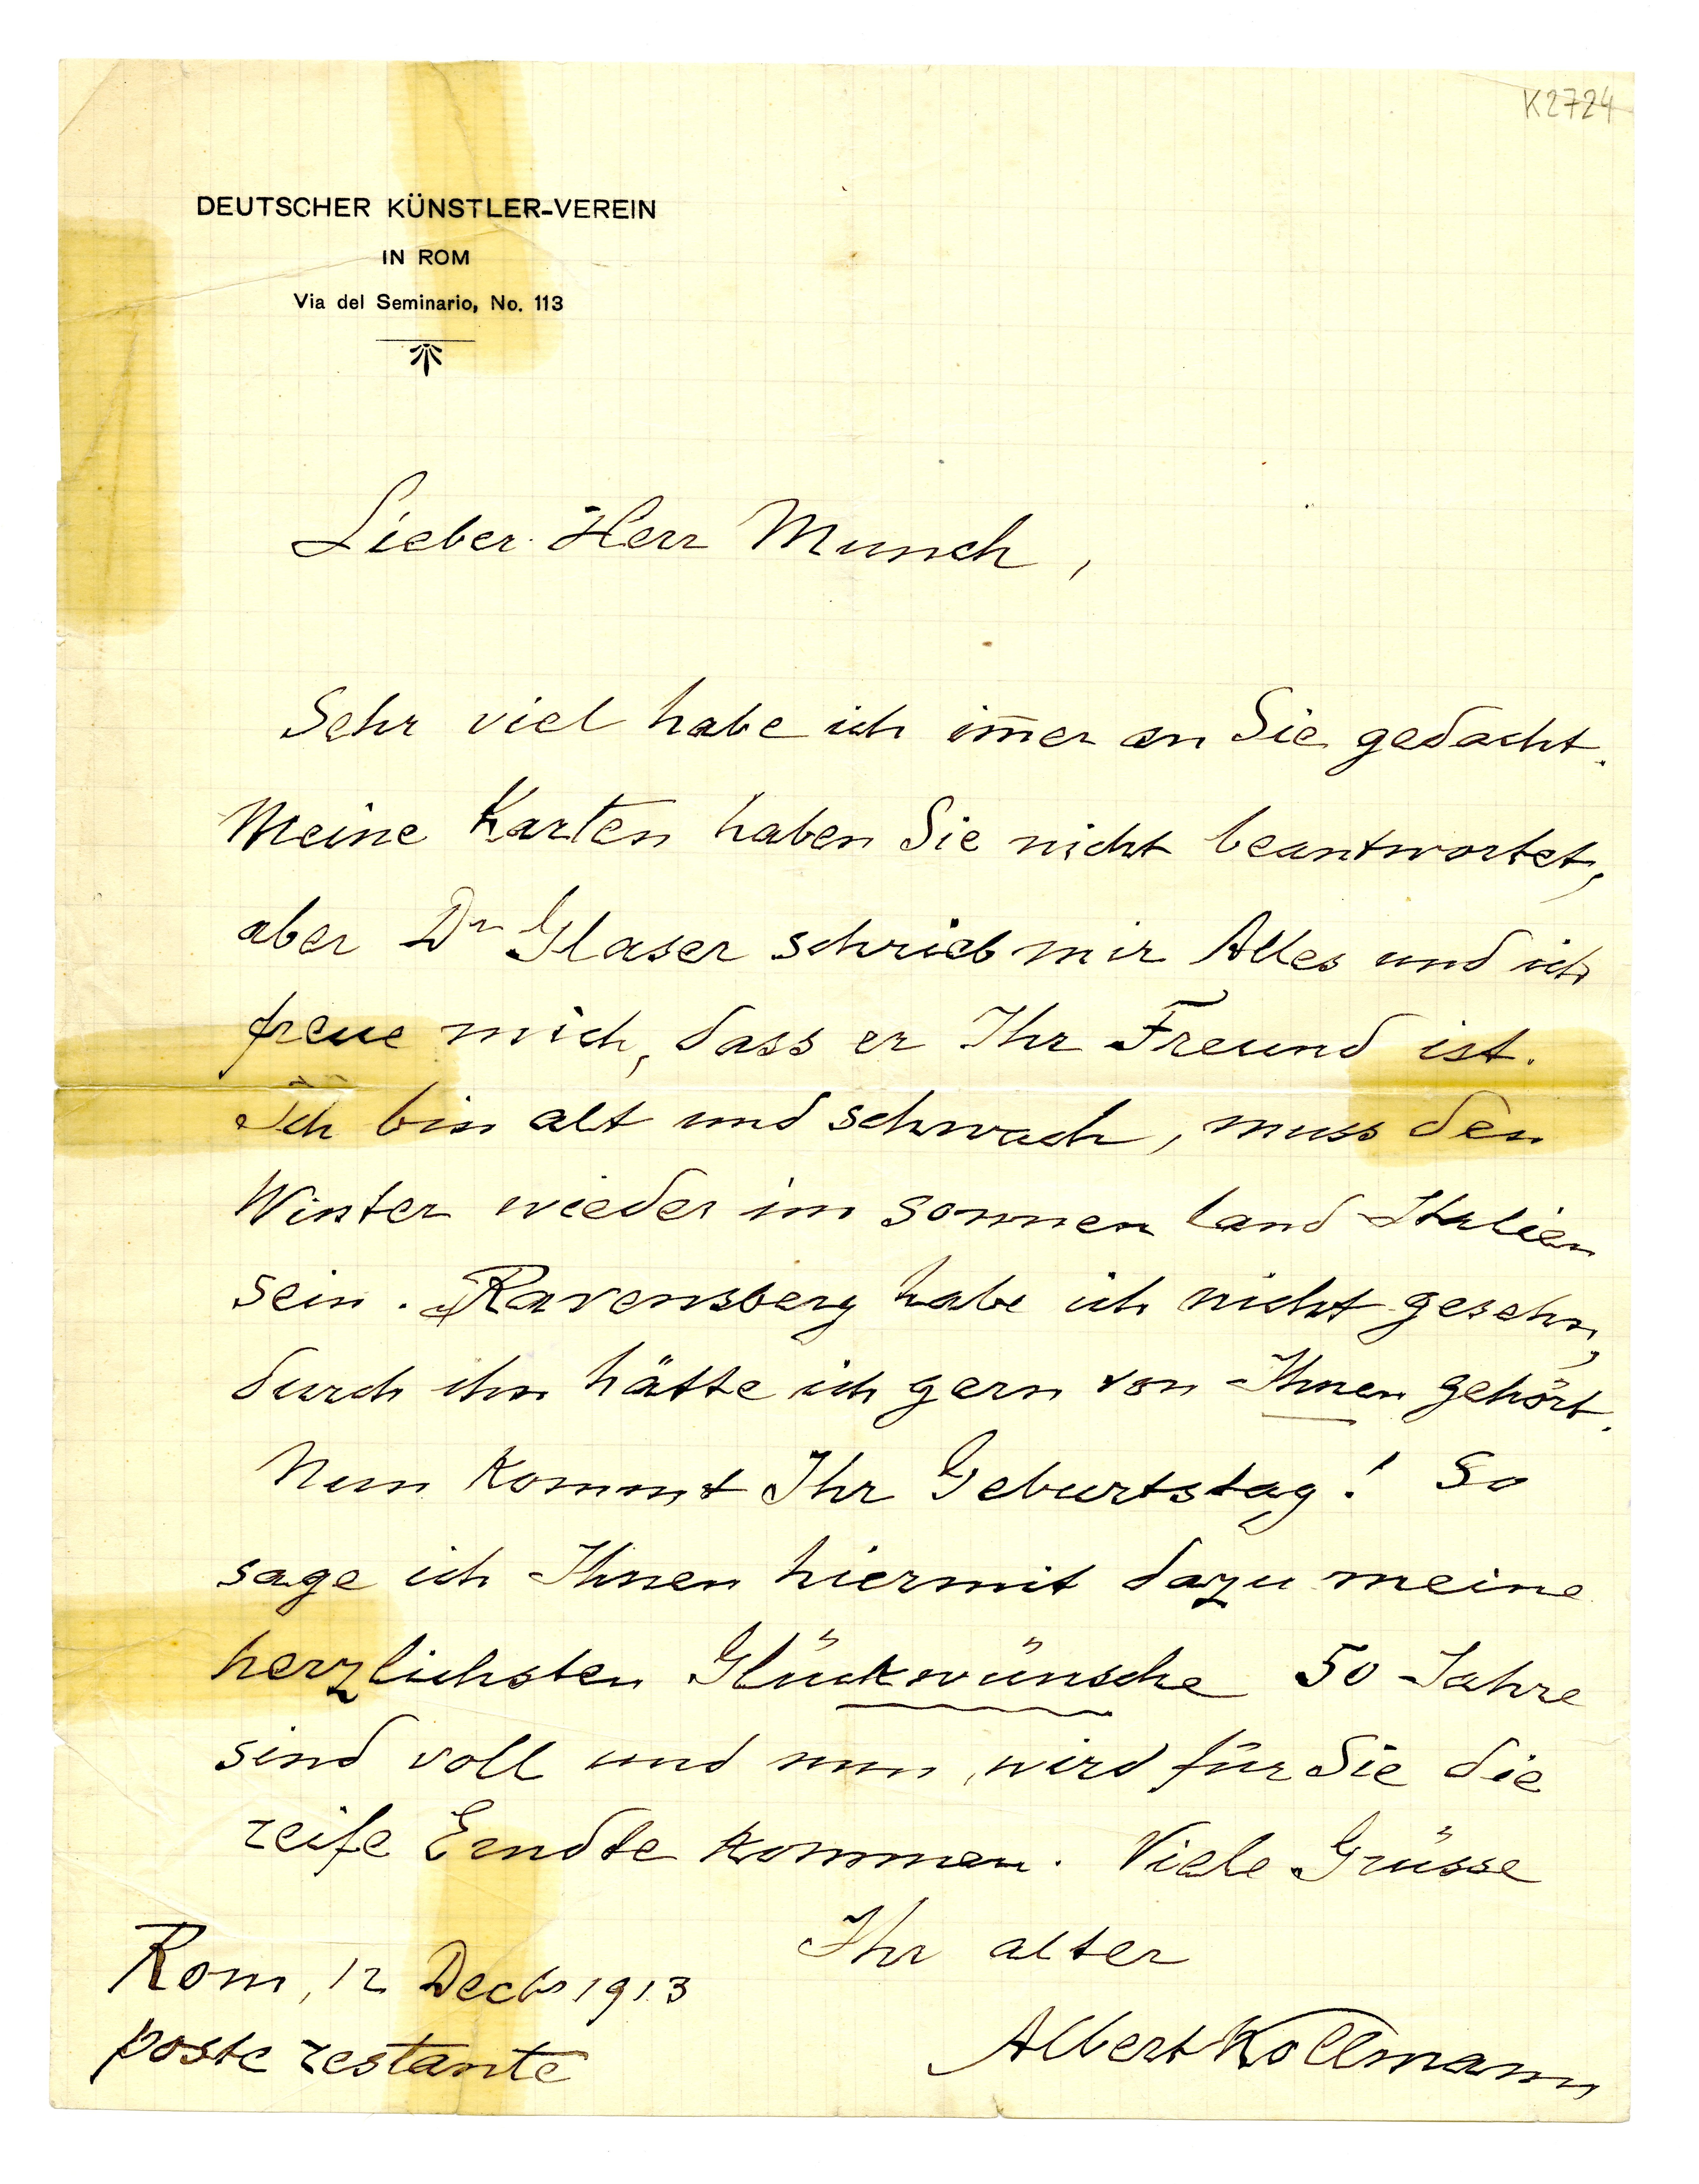 K2724
DEUTSCHER KÜNSTLER-VEREIN
IN ROM
Via del Seminario, No. 113
Lieber Herr Munch,
Sehr viel habe ich im̅er an Sie gedacht.
Meine Karten haben Sie nicht beantwortet,
aber Dr Glaser schrieb mir Alles und ich
freue mich, dass er Ihr Freund ist.
Ich bin alt und schwach, muss den
Winter wieder im sonnen land Italien
sein. Ravensberg habe ich nicht gesehn,
durch ihn hätte ich gern von Ihnen gehört.
Nun kommt Ihr Geburtstag! So
sage ich Ihnen hiermit dazu meine
herzlichsten Glückwünsche 50 Jahre
sind voll und nun wird für Sie die
reife Erndte kommen. Viele Grüsse
Ihr alter
Albert Kollmann
Rom, 12 Decbr 1913
poste restante